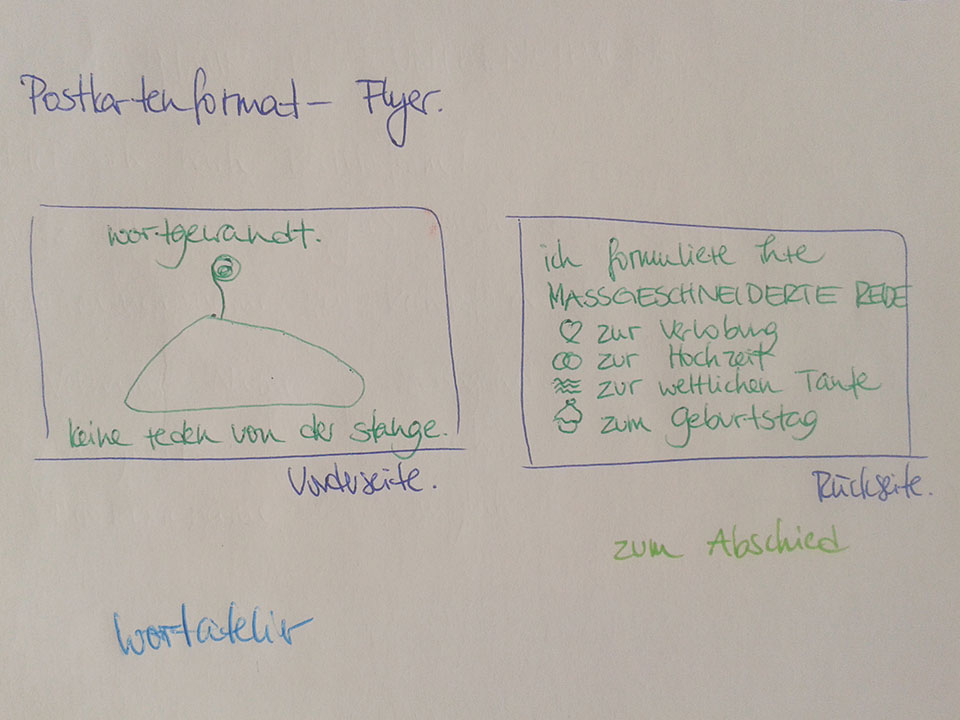 Postkartenformat - Flyer.
wortgewandt.
keine reden von der stange.
Vorderseite.
ich formuliere Ihre
MASSGESCHNEIDERTE REDE
zur Verlobung
zur Hochzeit
zur weltlichen Taufe
zum Geburtstag
Rückseite.
zum Abschied
wortatelier